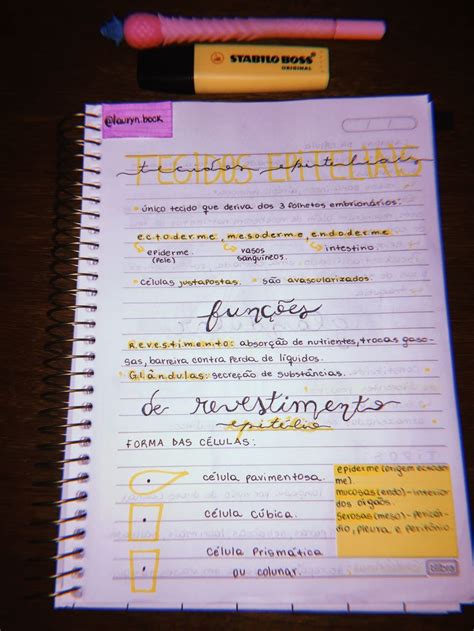 STABILO BOSS
ORIGINAL
@lauryn.bock
TECIDOS EPITELIAIS
tecidos epiteliais
• único tecido que deriva dos 3 folhetos embrionários:
ectoderme, mesoderme, endoderme
epiderme (pele)
vasos sanguíneos
intestino.
• células justapostas. • são avascularizados.
funções
Revestimento: absorção de nutrientes, trocas gaso-
sas, barreira contra perda de líquidos.
Glândulas: secreção de substâncias.
de revestimento
epitélio
FORMA DAS CÉLULAS:
célula pavimentosa.
célula cúbica.
célula Prismática
ou colunar.
epiderme (origem ectoder
me).
mucosas (endo) - interior
dos órgãos.
serosas (meso) - pericár-
dio, pleura e peritônio.
tilibra